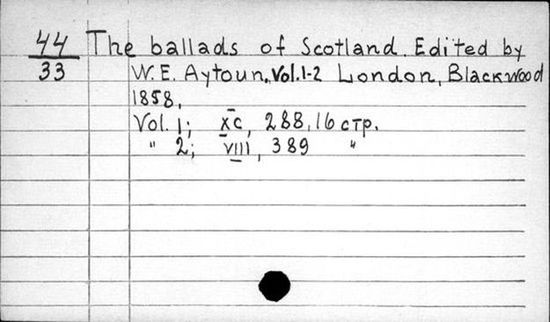 44 The ballads of Scotland. Edited by
33 W. E. Aytoun, Vol. 1-2 London, Blackwood
1858,
Vol. 1; XC, 288, 16 стр.
" 2; VIII, 389 "